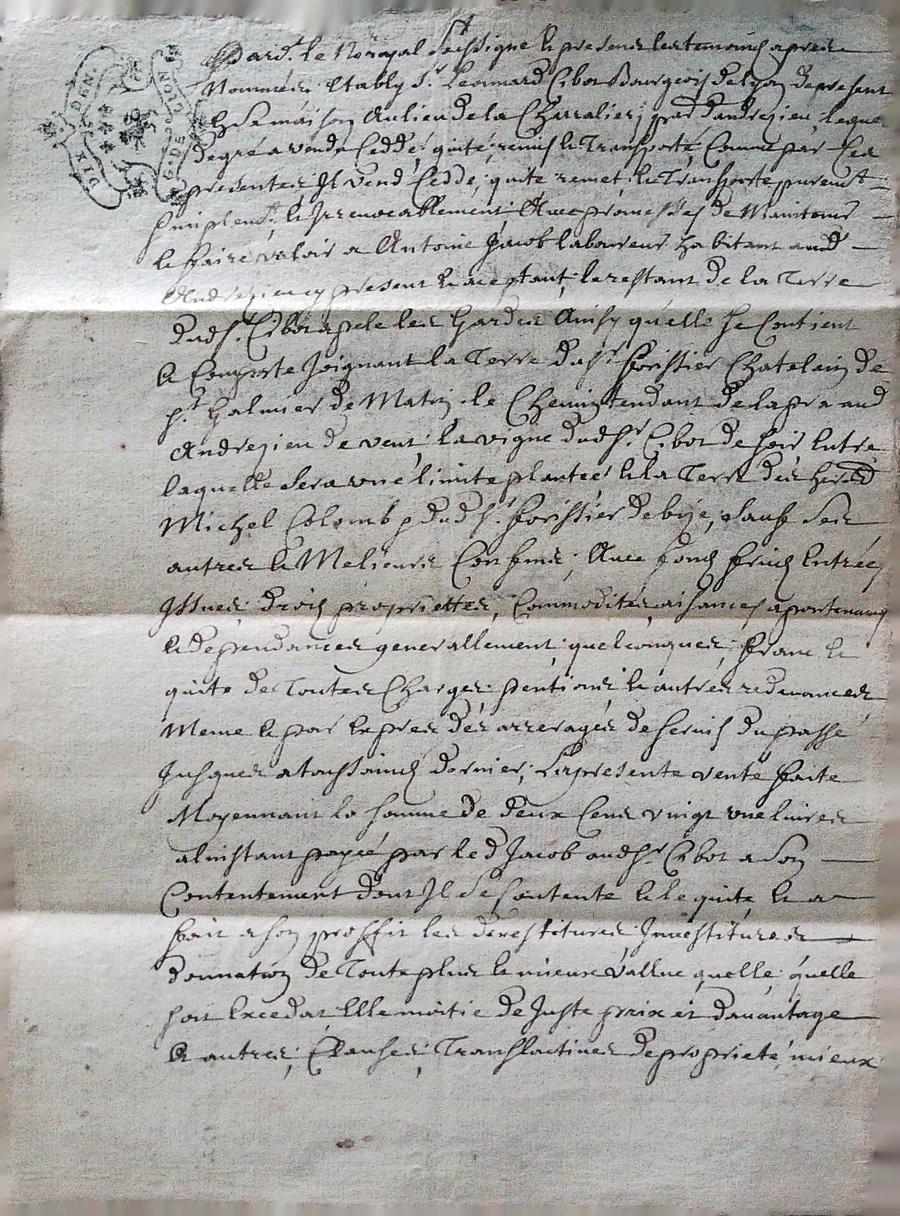 SIX DEN
LION GDE
Pard.t le No.re royal Soussigné & presens les temoins apres
Nommés Etably S.r Leonard Cibot Bourgeois de Lyon de present
En Sa maison Au lieu de la par d'andrezieu, leque
de gré a vendu Ceddé, quité, remis & Transporté, Comme par Ces
presentes Il vend, Cedde, quite remet, & Transporte purem.t
Simplem.t, & Irrevocablement Avec promesses de Maintenir
& faire valoir a Antoine Jacob laboureur habitant aud
Andrezieu cy present & aceptant, le restant de la Terre
dud S.r Cibot apelé les Gardes Ainsy qu'elle Se Contient
& Comporte Joignant la Terre du S.r forissier Chatelain de
S.t Galmier de Matin, le Chemin tendant de la pra aud
Andrezieu de vent, la vigne dud S.r Cibot de Soir Entre
laquelle Sera une limite plantée & la Terre des
Michel Colomb dud S.r forissier de bize, Sauf Ses
autres & Melieurs Confins, Avec fond fruids Entrées
Issues, droids proprietes, Commodités, aisances, apartenances
& dependances generallement, quelconques, franc &
quite de Toutes Charges pentions & autres redevances
Meme & par Expres des arrerages de Servis du passé
Jusques a toussainds dernier, La presente vente faite
Moyennant la Somme de deux Cens vingt une livres
a linstant payée par led Jacob aud S.r Cibot a Son
Contentement dont Il Se Contente & le quite, & a
fait a Son proffit les devestitures Investitures
donnation de Toute plus & mieux vallue, quelle, quelle
Soit Excedat Elle moitie de Juste prix et davantage
& autres, Clauses, Translatives de proprieté, mieux